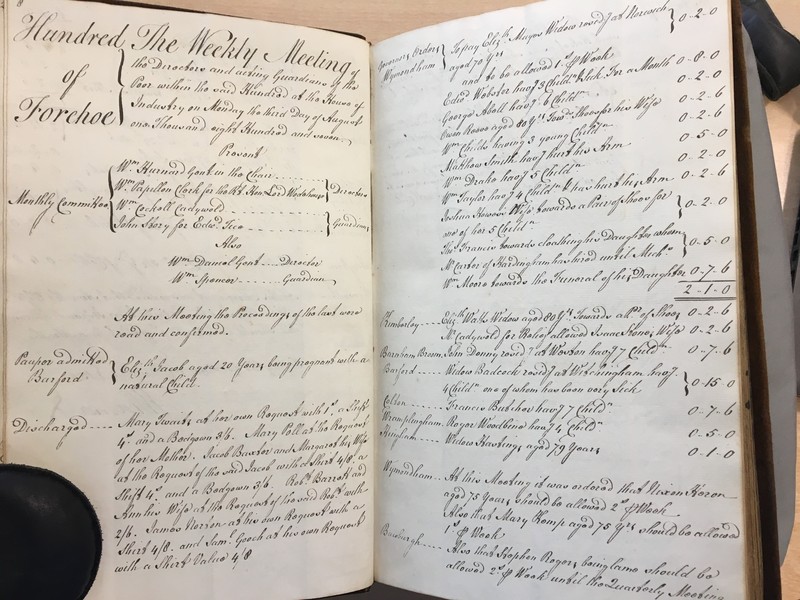 8
Hundred
of
Forehoe
The Weekly Meeting of
the Directors and acting Guardians of the
Poor within the said Hundred at the House of
Industry on Monday the third Day of August
one Thousand eight Hundred and seven
Present
Monthly Committee
Wm Hurnard Gent in the Chair
Wm Papillon Clerk for the Rt. Hon. Lord Wodehouse
Directors
Wm Cockell Cadywold
John Story for Edwd
Guardians
Also
Wm Daniel Gent Director
Wm Spencer Guardian
At this Meeting the Proceedings of the last were
read and confirmed.
Pauper admitted
Barford
Elizth Jacob aged 20 Years being pregnant with a
natural Child
Discharged
Mary Twaits at her own Request with a Shift
4s. and a Bedgown 3/6. Mary Poll at the Request
of her Mother. Jacob Baxter and Margaret his Wife
at the Request of the said Jacob with a Shirt 4/8. a
Shift 4s. and a Bedgown 3/6. Robt Barrett and
Ann his Wife at the Request of the said Robt with
2/6. James Norton at his own Request with a
Shirt 4/8. and Saml. Gooch at his own Request
with a Shirt Value 4/8
Governors Orders
Wymondham
To pay Elizth Mayes Widow resid at Norwich
aged 70 Ys
0-2-0
and to be allowed 1s. P Week
Edwd Webster havg 3 Childn Sick For a Month 0-8-0
George Aboll havg 6 Childn 0-2-0
Owen Reeve aged 80 Ys towds Shoes for his Wife 0-2-6
Wm Childs having 3 young Childn 0-2-6
Matthew Smith havg hurt his Arm 0-5-0
Wm Drake havg 5 Childn 0-2-0
Wm Taylor havg 4 Childn & has hurt his Arm 0-2-6
Joshua Howes Wife towards a Pair of Shoes for
one of her 5 Childn
0-2-0
Thos Francis towards cloathing his Daughter whom
Mr Carter of Hardingham has hired until Michs
0-5-0
Wm Moore towards the Funeral of his Daughter 0-7-6
2-1-0
Kimberley Elizth Watts Widow aged 80 Ys Towards a Pr of Shoes 0-2-6
Mr Cadywold for Relief allowed Isaac Stones Wife 0-2-6
Barnham Broom John Denny resid at Weston havg 7 Childn 0-7-6
Barford Widow Badcock resid at Witchingham havg
4 Childn one of whom has been very Sick
0-15-0
Colton Francis Butcher havg 7 Childn 0-7-6
Wramplingham Roger Woodbine havg 4 Childn 0-5-0
Widow Hastings aged 79 Years 0-1-0
Wymondham At this Meeting it was ordered that Nixon Heron
aged 75 Years should be allowed 2s. P Week
Also that Mary Kemp aged 75 Ys should be allowed
1s. P Week
Bawburgh Also that Stephen Rogers being lame should be
allowed 2s. P Week until the Quarterly Meeting